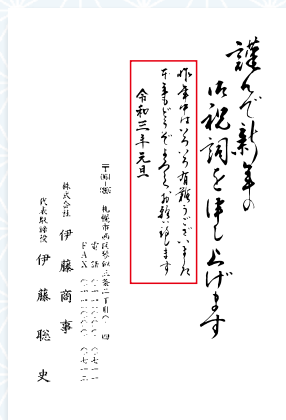 謹んで新年の
御祝詞を申し上げます
昨年中はいろいろ有難うございました
本年もどうぞよろしくお願い致します
令和三年元旦
札幌市西区琴似三条二丁目
電話
FAX
株式会社 伊藤商事
代表取締役 伊藤聡史